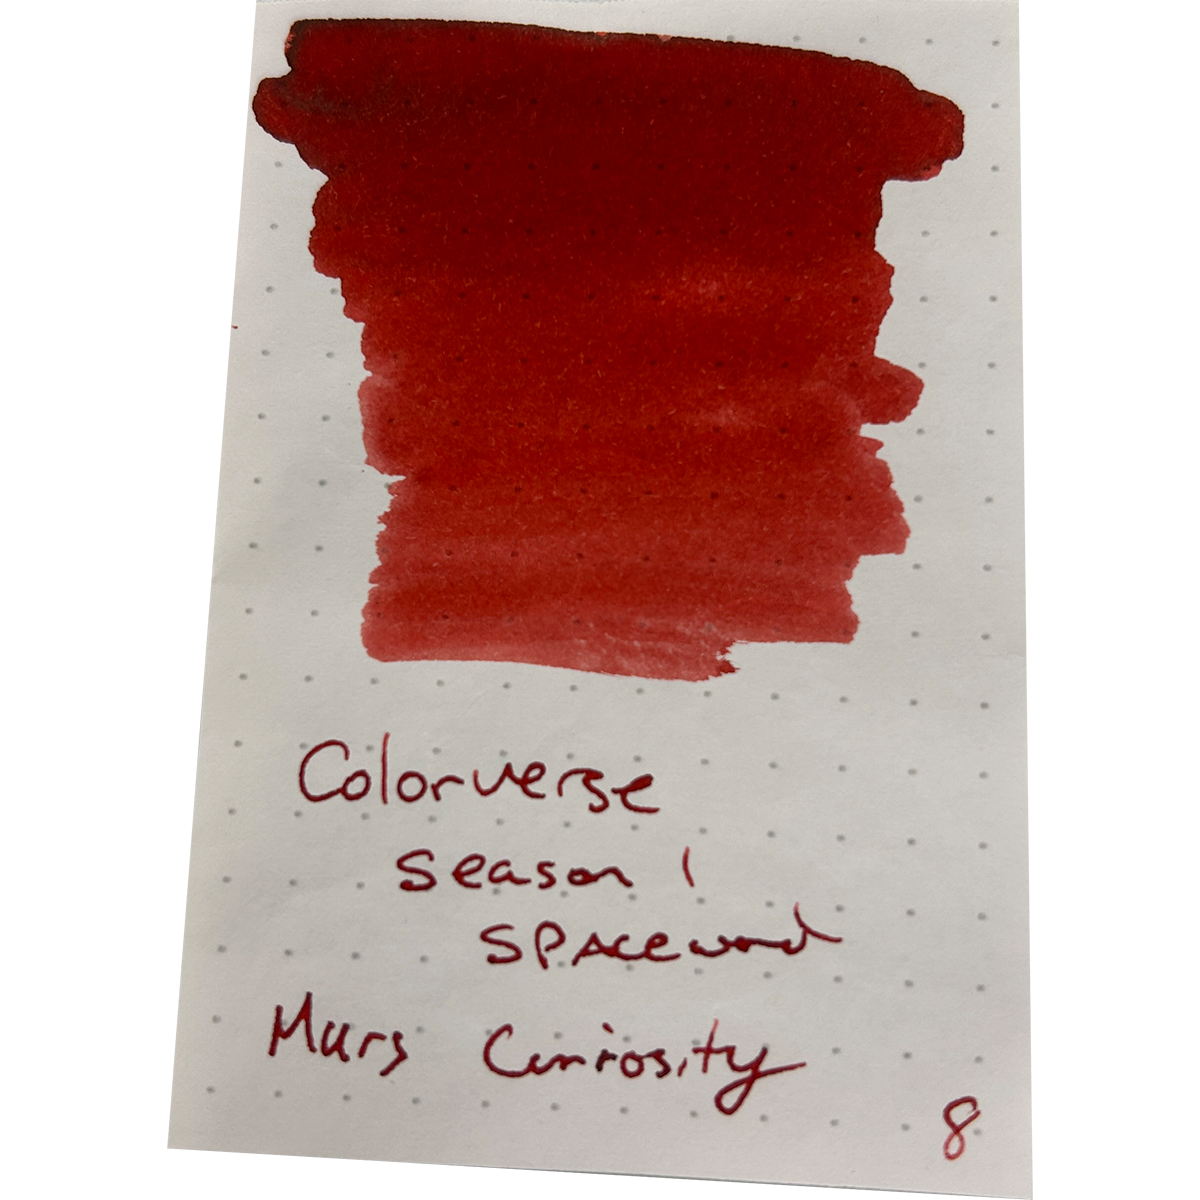 Colorverse
Season 1
SPACEward
Mars Curiosity
8